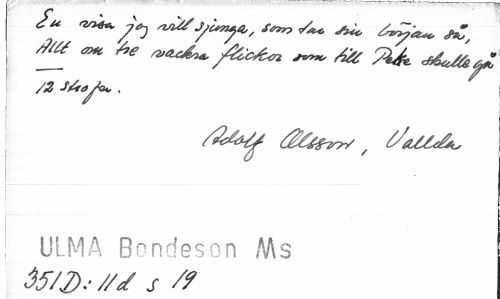 En visa jag vill sjunga, som tar sin början så,
Allt om tre vackra flickor som till Peke skulle gå
12 strofer.
Adolf Olsson, Vallda
ULMA Bondeson Ms
351D: 11d s 19